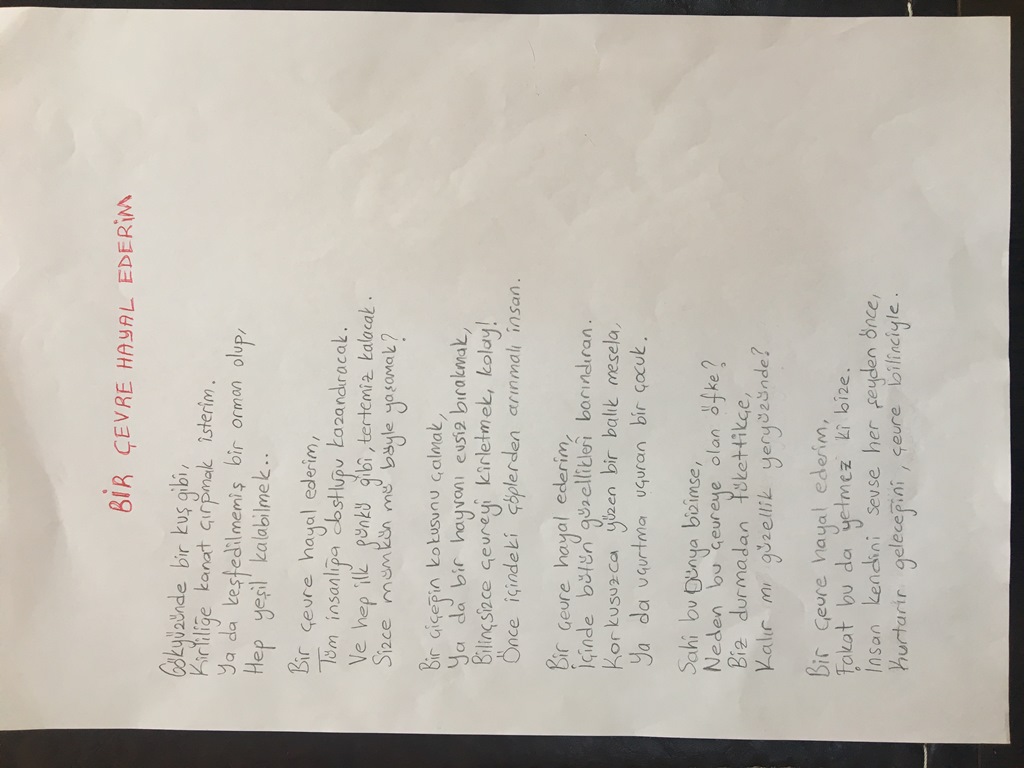 BİR ÇEVRE HAYAL EDERİM
Gökyüzünde bir kuş gibi,
Kirliliğe kanat çırpmak isterim.
Ya da keşfedilmemiş bir orman olup,
Hep yeşil kalabilmek..
Bir çevre hayal ederim,
Tüm insanlığa dostluğu kazandıracak.
Ve hep ilk günkü gibi, tertemiz kalacak.
Sizce mümkün mü böyle yaşamak?
Bir çiçeğin kokusunu çalmak,
Ya da bir hayvanı evsiz bırakmak,
Bilinçsizce çevreyi kirletmek, kolay!
Önce içindeki çöplerden arınmalı insan.
Bir çevre hayal ederim,
İçinde bütün güzellikleri barındıran.
Korkusuzca yüzen bir balık mesela,
Ya da uçurtma uçuran bir çocuk.
Sahi bu Dünya bizimse,
Neden bu çevreye olan öfke?
Biz durmadan tükettikçe,
Kalır mı güzellik yeryüzünde?
Bir çevre hayal ederim,
Fakat bu da yetmez ki bize.
İnsan kendini sevse her şeyden önce,
Kurtarır geleceğini, çevre bilinciyle.